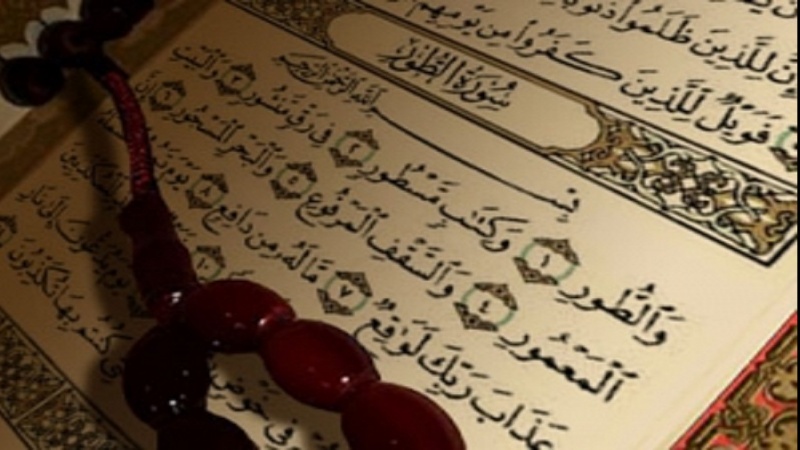 إِنَّ لِلَّذِينَ ظَلَمُوا۟ ذَنُوبًا
فَوَيْلٌ لِّلَّذِينَ كَفَرُوا۟ مِن يَوْمِهِمُ
سُورَةُ الطُّورِ
بِسْمِ ٱللَّهِ ٱلرَّحْمَٰنِ ٱلرَّحِيمِ
وَٱلطُّورِ ١ وَكِتَٰبٍ مَّسْطُورٍ ٢ فِى رَقٍّ مَّنشُورٍ ٣ وَٱلْبَيْتِ
ٱلْمَعْمُورِ ٤ وَٱلسَّقْفِ ٱلْمَرْفُوعِ ٥ وَٱلْبَحْرِ ٱلْمَسْجُورِ ٦ إِنَّ
عَذَابَ رَبِّكَ لَوَٰقِعٌ ٧ مَّا لَهُۥ مِن دَافِعٍ ٨ يَوْمَ
فِى خَوْضٍ يَوْمَ يُدَعُّونَ إِلَىٰ نَارِ
كُنتُم بِهَا تُكَذِّبُونَ